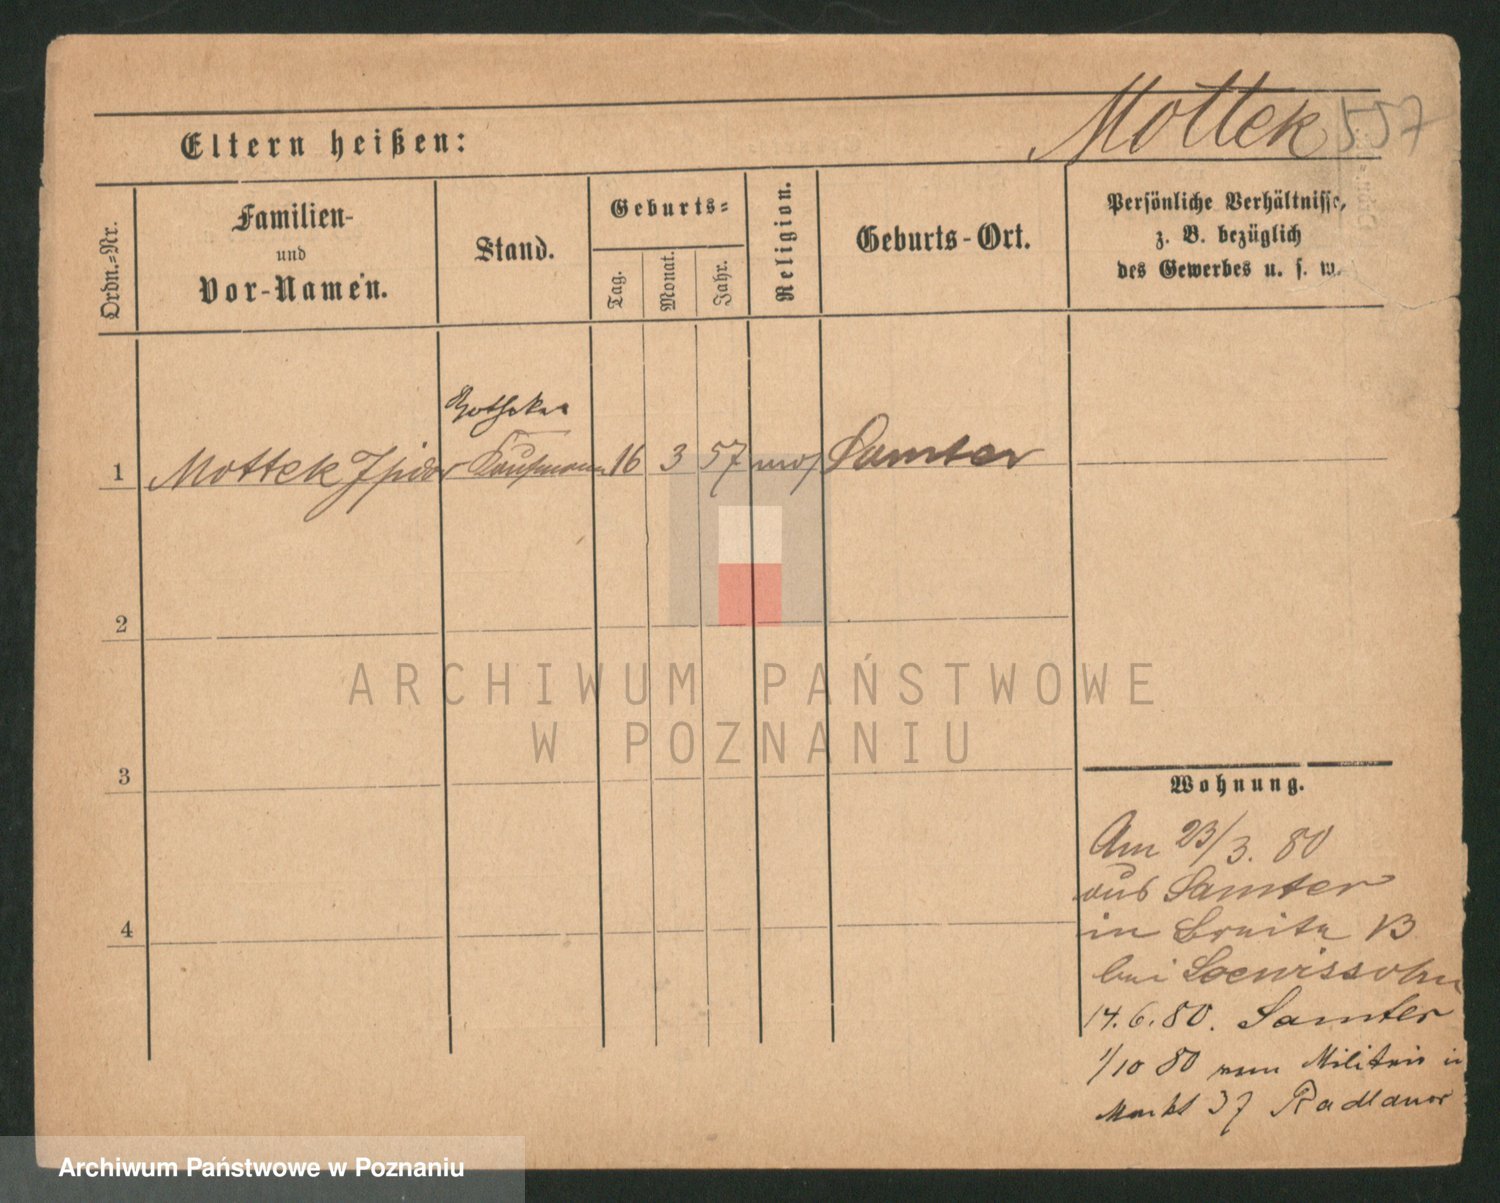 Mottek 557
Eltern heißen:
Ordn.=Nr.
Familien-
und
Vor-Namen.
Stand.
Geburts=
Tag.
Monat.
Jahr.
Religion.
Geburts-Ort.
Persönliche Verhältnisse,
z. B. bezüglich
des Gewerbes u. s. w.
Apotheker
1 Mottek Isidor Kaufmann 16 3 57 mos Samter
2
3
4
ARCHIWUM PAŃSTWOWE
W POZNANIU
Wohnung.
Am 23/3. 80
aus Samter
in Breite 13
bei Loewissohn
14.6.80. Samter
1/10 80 zum Militair in
Markt 37 Radlauer
Archiwum Państwowe w Poznaniu